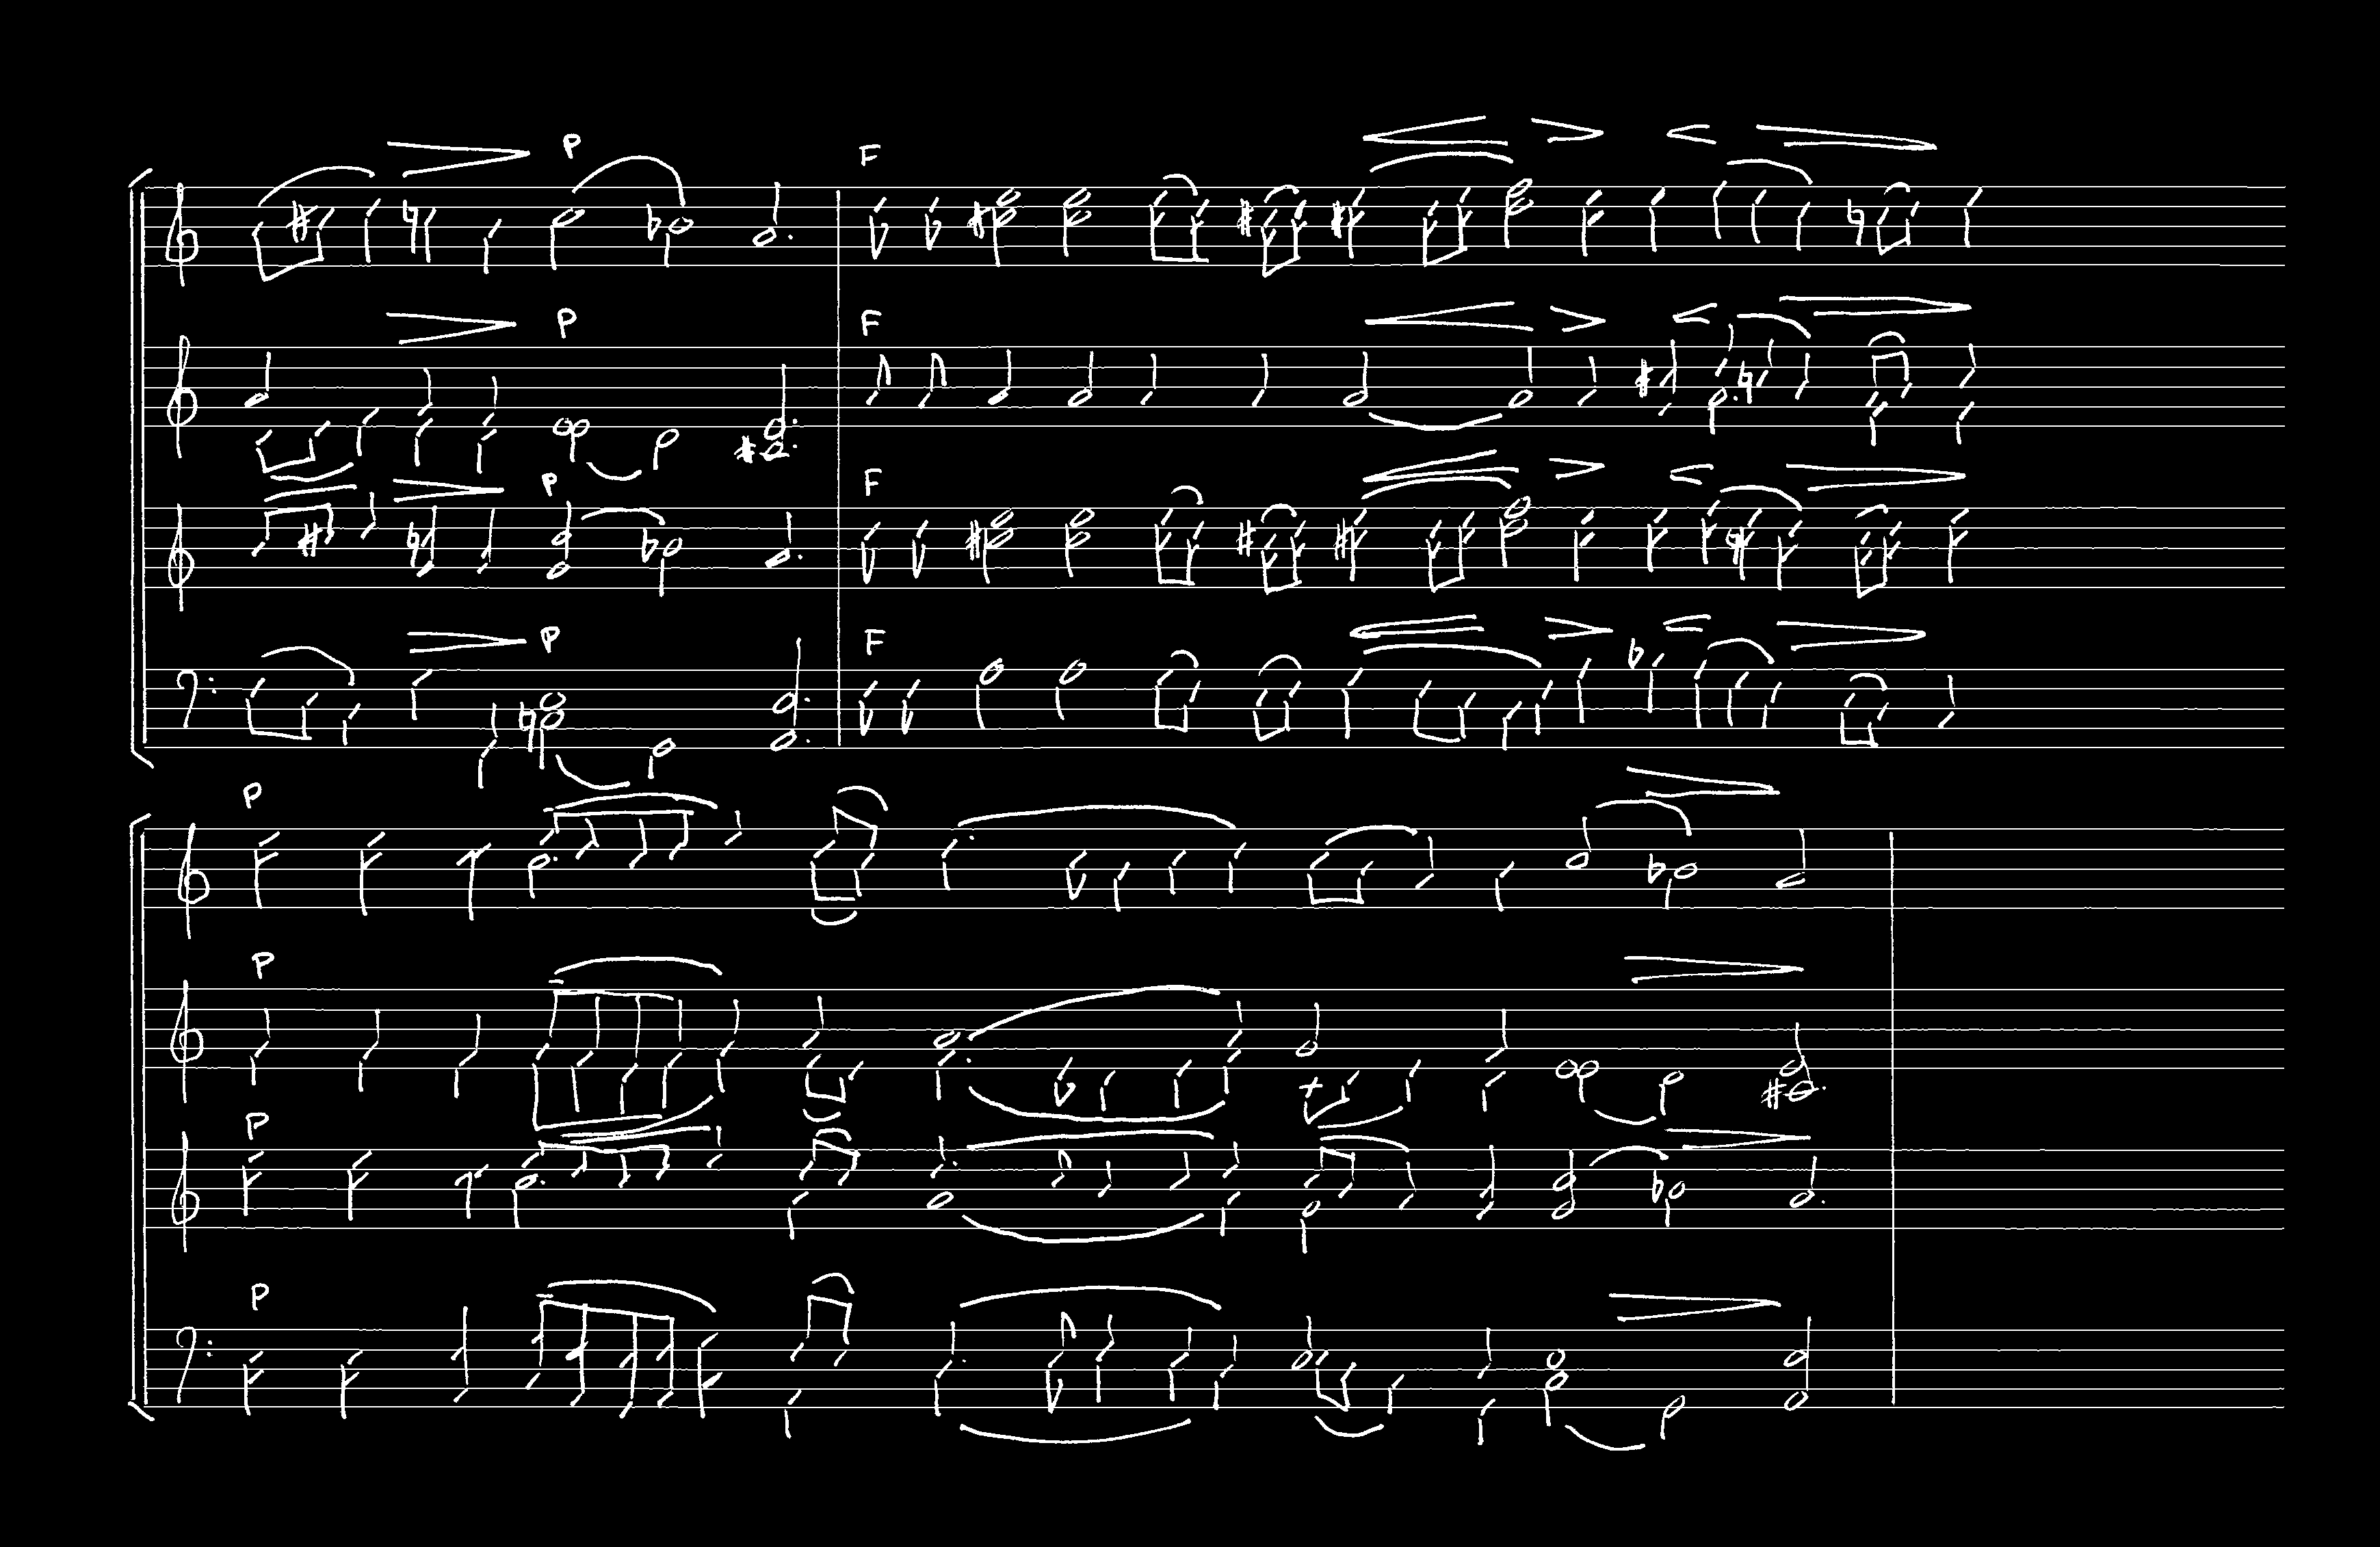 P
F
P
F
P
F
P
F
P
P
P
P